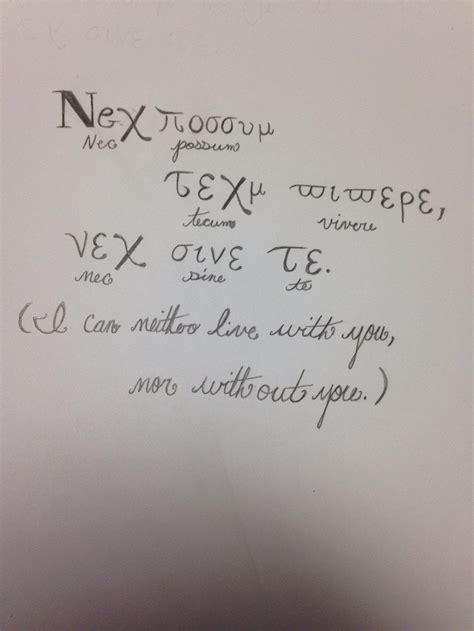 Νεχ ποσσυμ
Nec possum
τεχμ ϖιϖερε,
tecum vivere
νεχ σινε τε.
nec sine te
(I can neither live with you,
nor without you.)